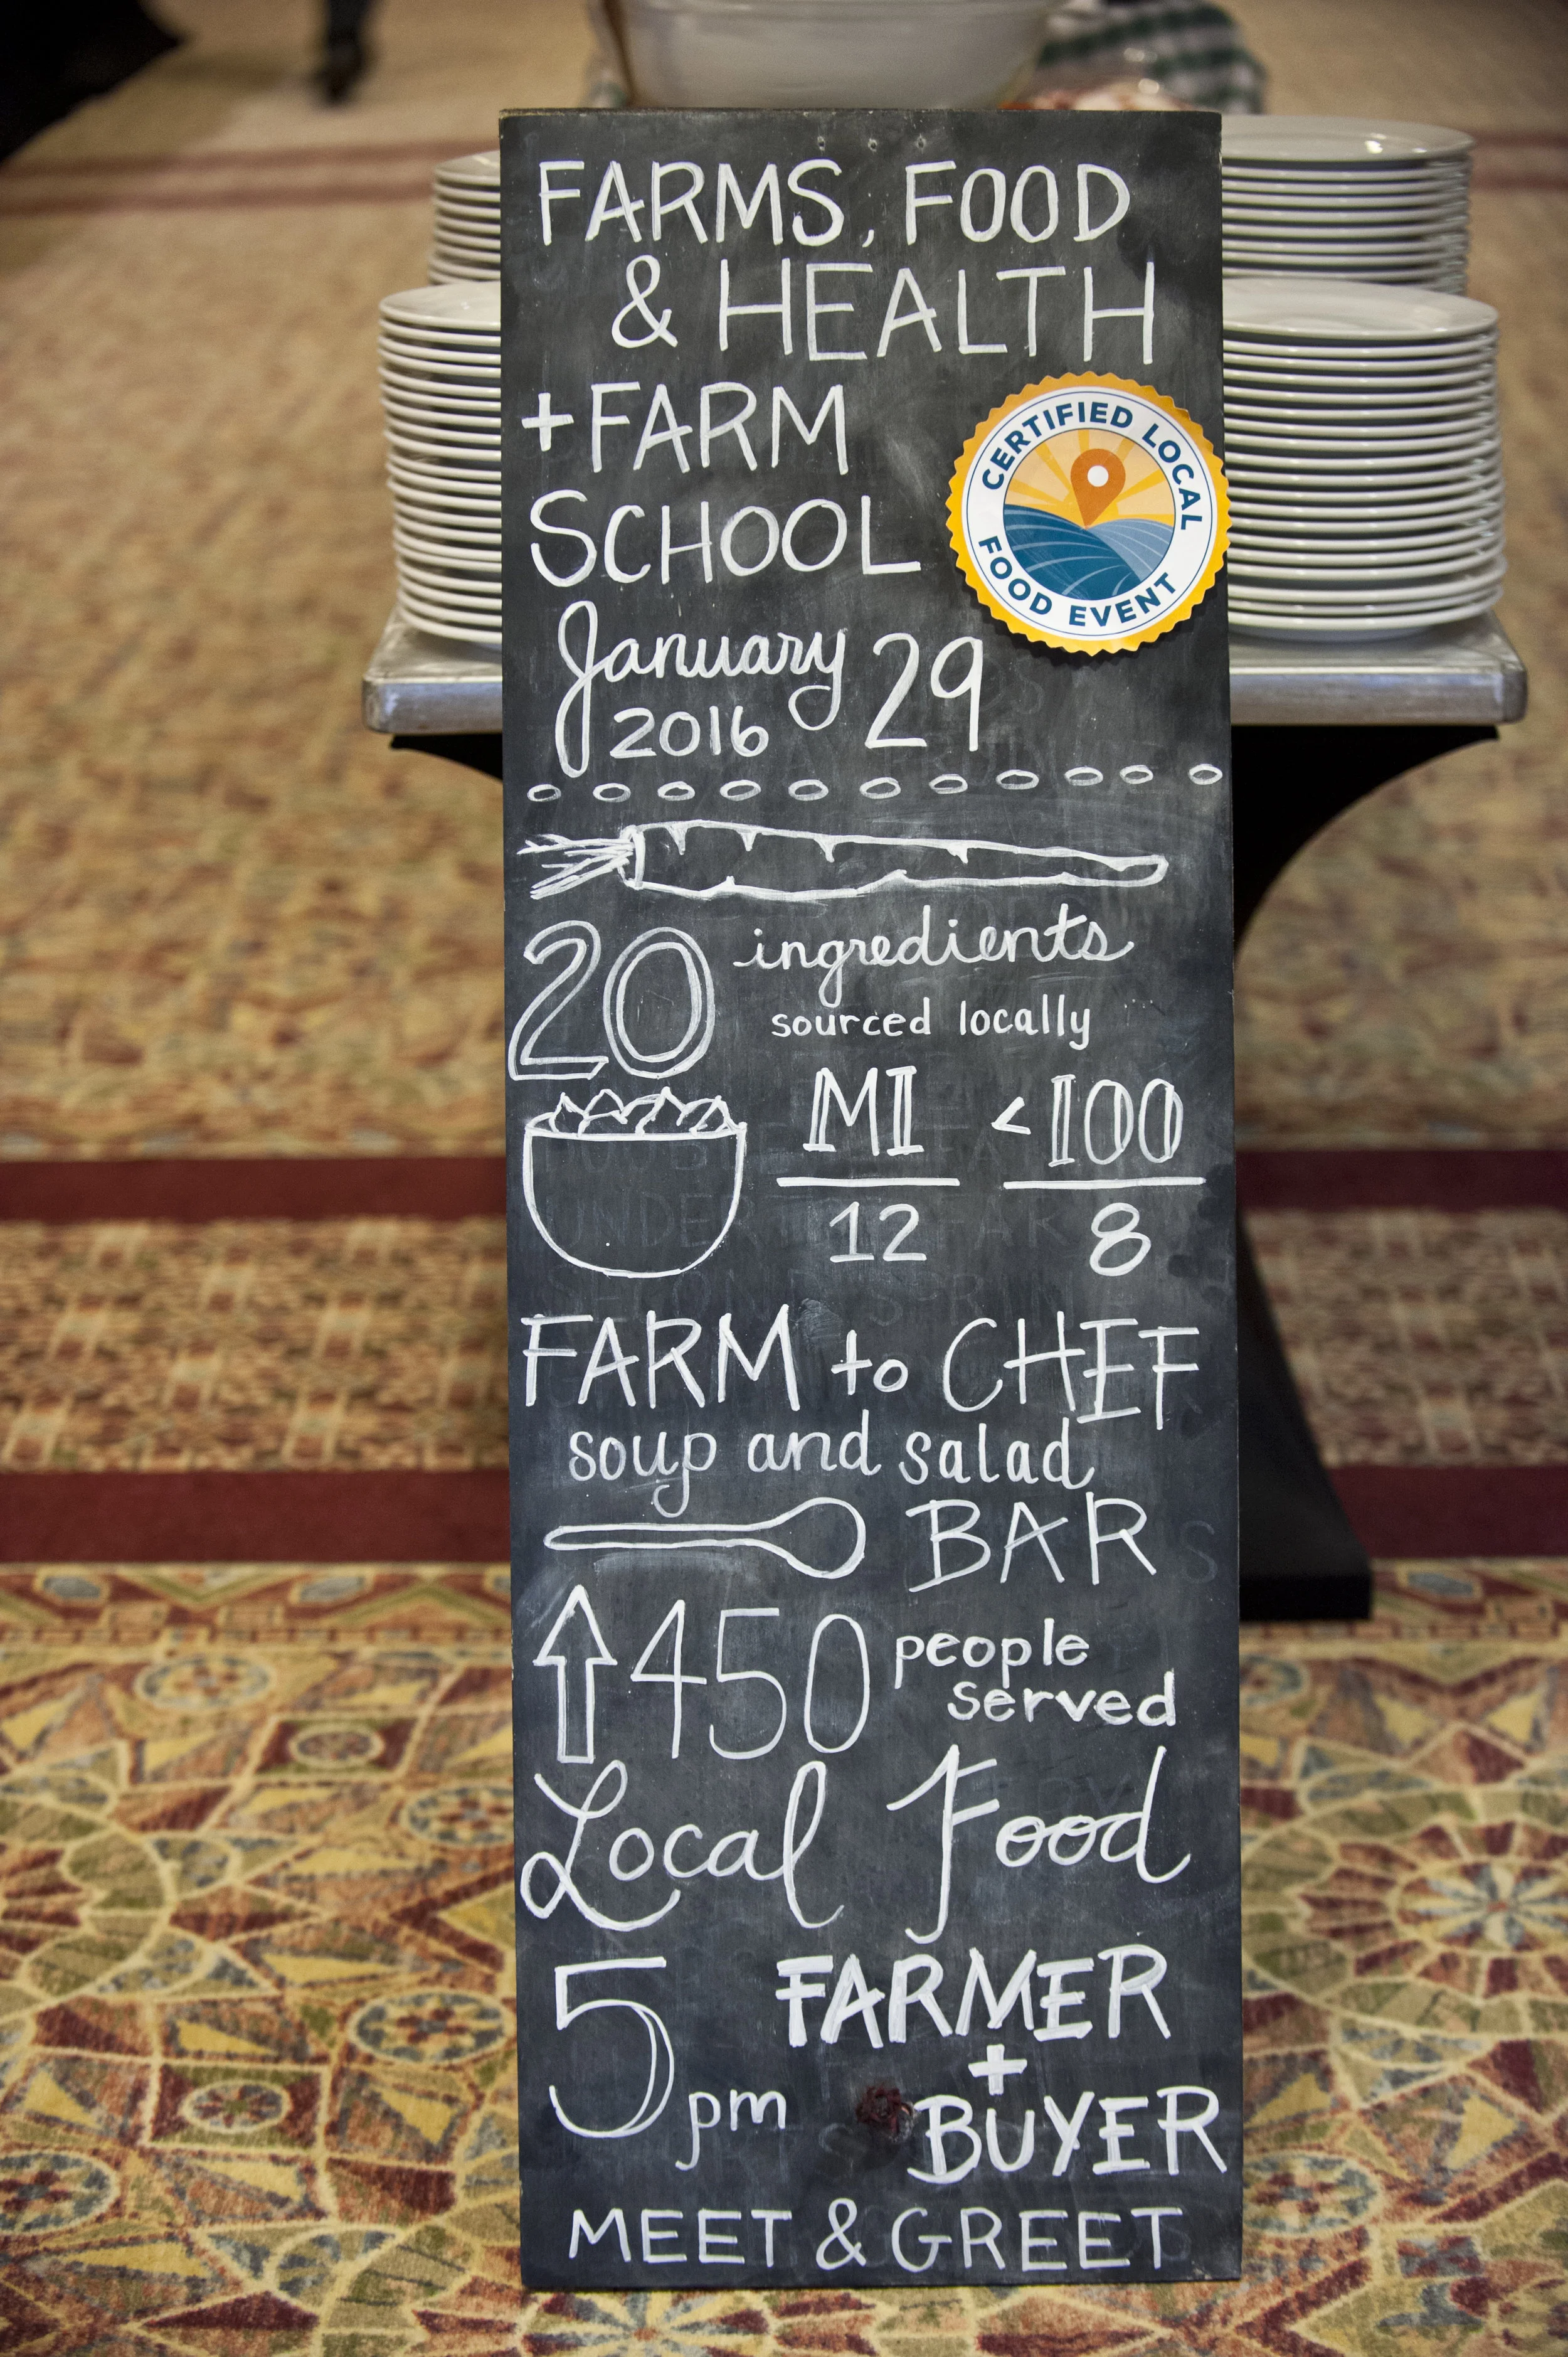 FARMS, FOOD
& HEALTH
+FARM
SCHOOL
CERTIFIED LOCAL
FOOD EVENT
January 29
2016
20 ingredients
sourced locally
MI <100
12 8
FARM to CHEF
soup and salad
BAR
↑450 people
served
Local Food
5 pm FARMER
+
BUYER
MEET & GREET